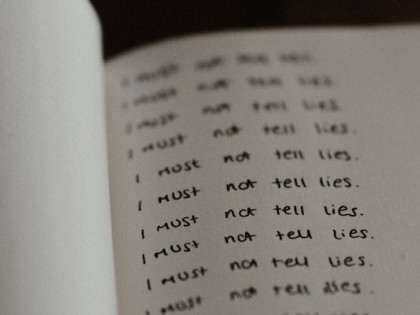 I must not tell lies.
I must not tell lies.
I must not tell lies.
I must not tell lies.
I must not tell lies.
I must not tell lies.
I must not tell lies.
I must not tell lies.
I must not tell lies.
I must not tell lies.